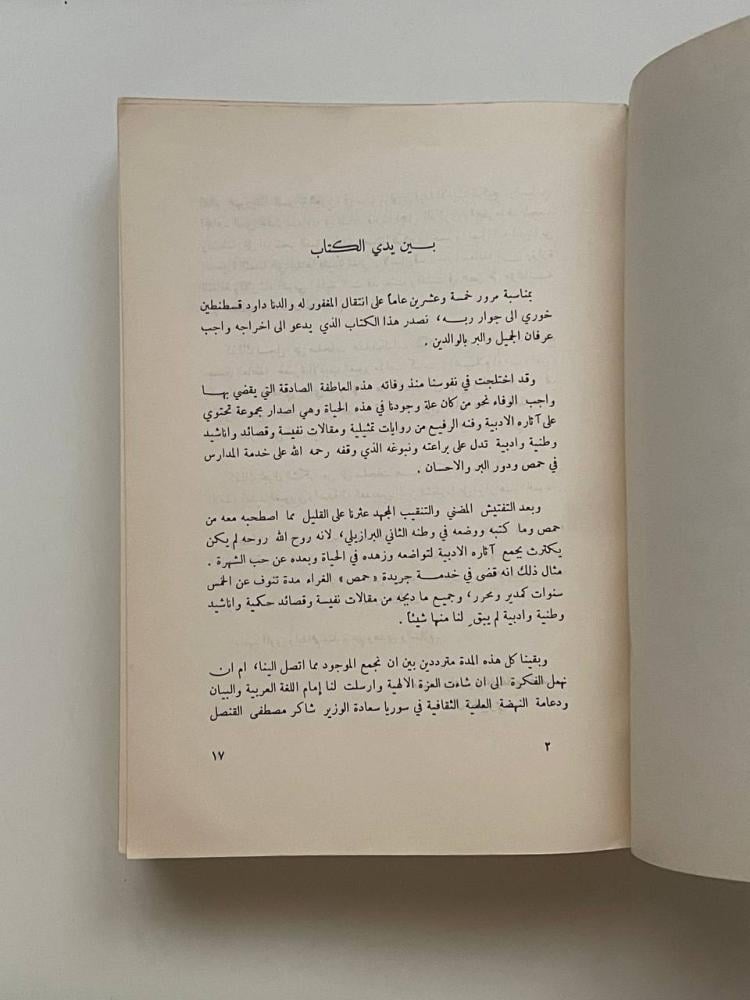 بسين يدي الكتاب
بمناسبة مرور خمسة وعشرين عاماً على انتقال المغفور له والدنا داود قسطنطين
خوري الى جوار ربه، نصدر هذا الكتاب الذي يدعو الى اخراجه واجب
عرفان الجميل والبر بالوالدين .
وقد اختلجت في نفوسنا منذ وفاته هذه العاطفة الصادقة التي يقضي بها
واجب الوفاء نحو من كان علة وجودنا في هذه الحياة وهي اصدار مجموعة تحتوي
على آثاره الادبية وفنه الرفيع من روايات تمثيلية ومقالات نفيسة وقصائد واناشيد
وطنية وادبية تدل على براعته ونبوغه الذي وقفه رحمه الله على خدمة المدارس
في حمص ودور البر والاحسان .
وبعد التفتيش المضني والتنقيب المجهد عثرنا على القليل مما اصطحبه معه من
حمص وما كتبه ووضعه في وطنه الثاني البرازيلي، لانه روح الله روحه لم يكن
يكترث بجمع آثاره الادبية لتواضعه وزهده في الحياة وبعده عن حب الشهرة .
مثال ذلك انه قضى في خدمة جريدة «حمص» الغراء مدة تنوف عن الخمس
سنوات كمدير ومحرر، وجميع ما دبجه من مقالات نفيسة وقصائد حكمية واناشيد
وطنية وادبية لم يبقَ لنا منها شيئاً .
وبقينا كل هذه المدة مترددين بين ان نجمع الموجود مما اتصل الينا، ام ان
نهمل الفكرة الى ان شاءت العزة الالهية وارسلت لنا إمام اللغة العربية والبيان
ودعامة النهضة العلمية الثقافية في سوريا سعادة الوزير شاكر مصطفى القنصل
٢
١٧